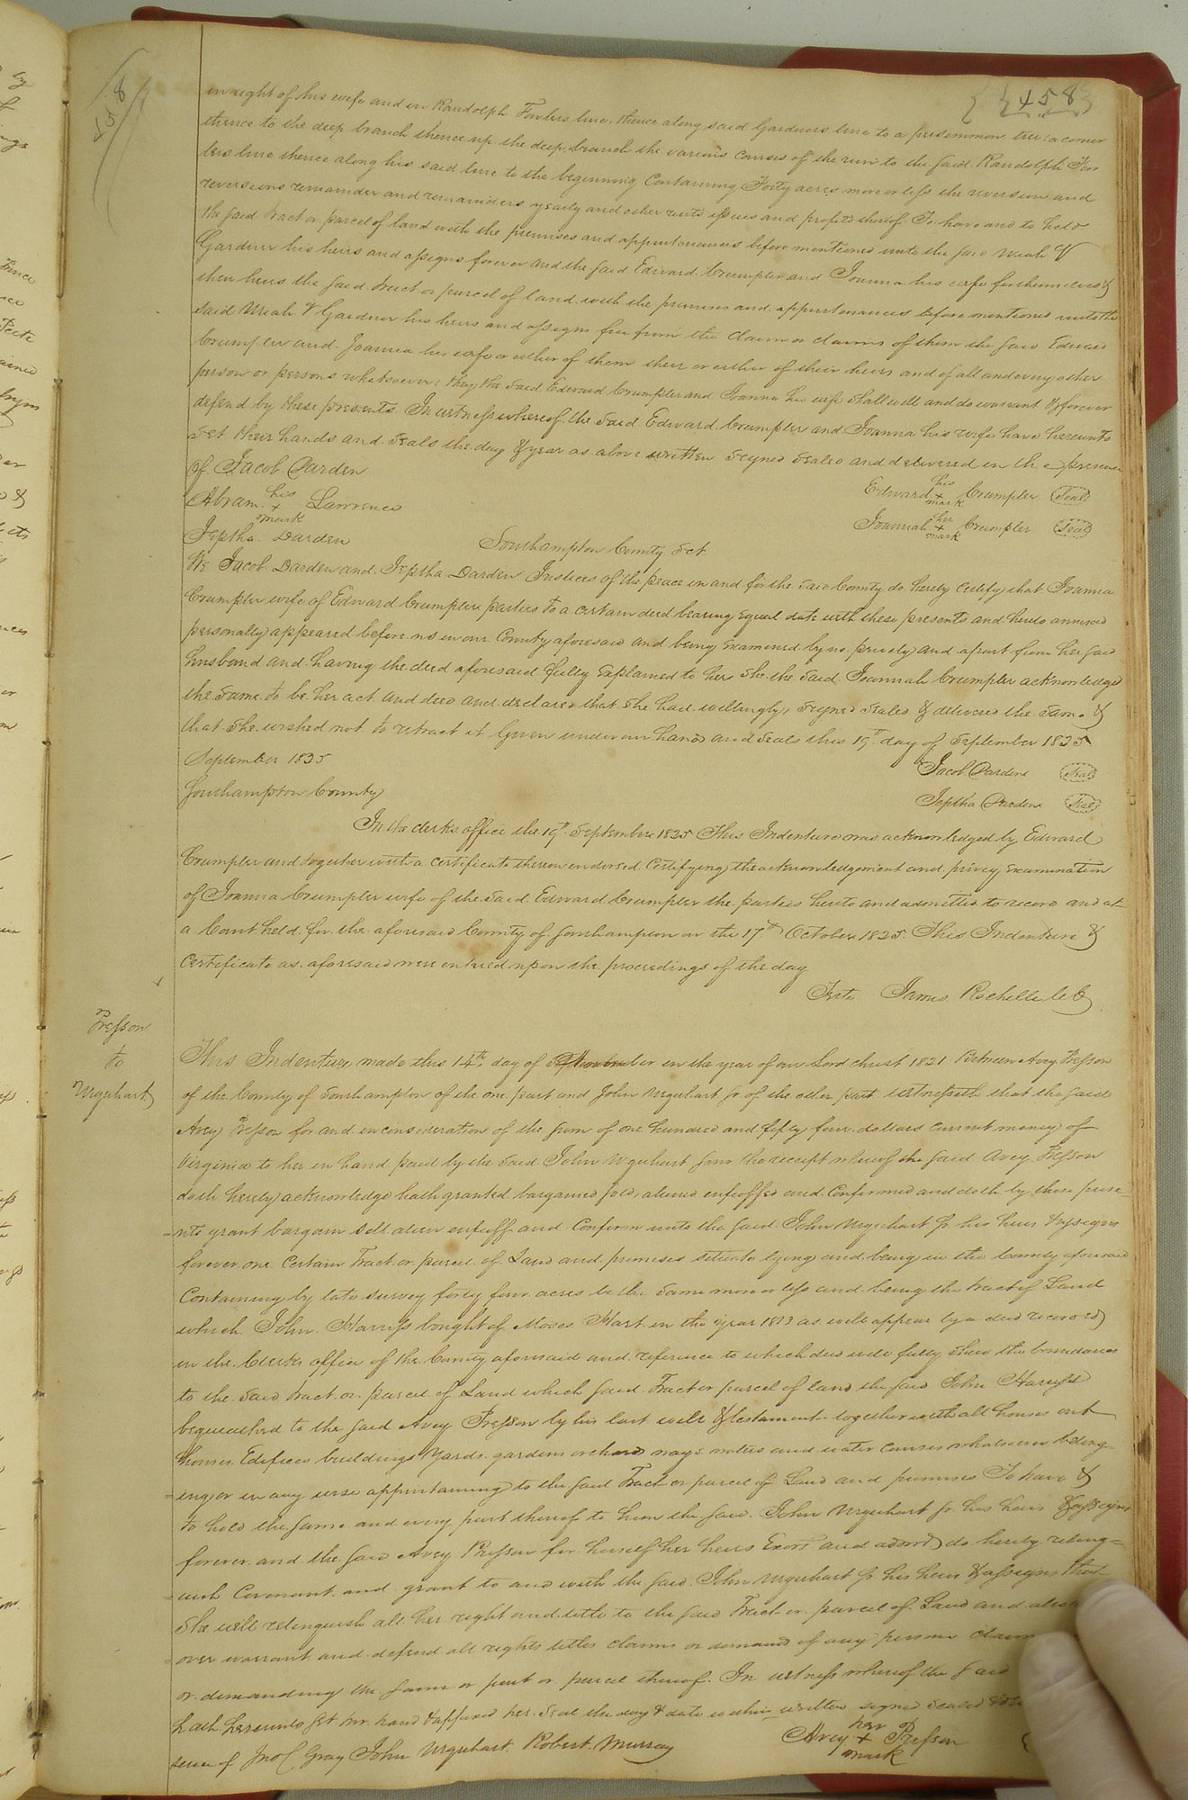 458
{ {458}
in right of his wife and in Randolph Fowlers line, thence along said Gardners line to a persimmon tree a corner
thence to the deep branch thence up the deep branch the various courses of the run to the said Randolph Fow
lers line thence along his said line to the beginning Containing Forty acres more or less the reversion and
reversions remainder and remainders yearly and other rents issues and profits thereof To have and to hold
the said tract or parcel of land with the premises and appurtenances before mentioned unto the said Uriah V
Gardner his heirs and assigns forever and the said Edward Crumpler and Joanna his wife for themselves &
their heirs the said tract or parcel of land with the premises and appurtenances before mentioned unto the
said Uriah V Gardner his heirs and assigns free from the claim or claims of them the said Edward
Crumpler and Joanna his wife or either of them their or either of their heirs and of all and every other
person or persons whatsoever they the said Edward Crumpler and Joanna his wife shall will and do warrant & forever
defend by these presents. In witness whereof the said Edward Crumpler and Joanna his wife have hereunto
set their hands and seals the day & year as above written signed sealed and delivered in the presence
of Jacob Darden
Edward his + mark Crumpler Seal
Abram his + mark Lawrence
Joannah her + mark Crumpler Seal
Jeptha Darden
Southampton County Sct
We Jacob Darden and Jeptha Darden Justices of the peace in and for the said County do hereby certify that Joanna
Crumpler wife of Edward Crumpler parties to a certain deed bearing equal date with these presents and hereto annexed
personally appeared before us in our County aforesaid and being examined by us privily and apart from her said
husband and having the deed aforesaid fully explained to her she the said Joannah Crumpler acknowledged
the same to be her act and deed and declared that she had willingly signed sealed & delivered the same &
that she wished not to retract it Given under our hands and seals this 19th day of September 1825
September 1825
Jacob Darden Seal
Southampton County
Jeptha Darden Seal
In the clerks office the 19th September 1825 This Indenture was acknowledged by Edward
Crumpler and together with a certificate thereon endorsed Certifying the acknowledgement and privy examination
of Joanna Crumpler wife of the said Edward Crumpler the parties hereto and admitted to record and at
a Court held for the aforesaid County of Southampton on the 17th October 1825 This Indenture &
certificate as aforesaid were entered upon the proceedings of the day
Teste James Rochelle C C
Presson
to
Urquhart
This Indenture made this 14th day of in the year of our Lord christ 1821 Between Avey Presson
of the County of Southampton of the one part and John Urquhart Jr of the other part witnesseth that the said
Avey Presson for and in consideration of the sum of one hundred and fifty four dollars current money of
Virginia to her in hand paid by the said John Urquhart Jr the receipt whereof the said Avey Presson
doth hereby acknowledge hath granted bargained sold, aliened enfeoffed and confirmed and doth by these prese
nts grant bargain sell alien enfeoff and Confirm unto the said John Urquhart Jr his heirs & assigns
forever one certain Tract or parcel of Land and premises situate lying and being in the County aforesaid
Containing by late survey forty four acres be the same more or less and being the tract of Land
which John Harriss bought of Moses Hart in the year 1813 as will appear by a deed recorded
in the Clerks office of the County aforesaid and reference to which deed will fully shew the boundaries
to the said tract or parcel of Land which said Tract or parcel of land the said John Harriss
bequeathed to the said Avey Presson by his last will & testament together with all houses out
houses Edifices buildings yards gardens orchard ways waters and water courses whatsoever belong
ing or in any wise appertaining to the said Tract or parcel of Land and premises To have &
to hold the same and every part thereof to him the said John Urquhart Jr his heirs & assigns
forever and the said Avey Presson for herself her heirs Exors and admrs do hereby relinq
uish Covenant and grant to and with the said John Urquhart Jr his heirs & assigns that
She will relinquish all her right and title to the said Tract or parcel of Land and also
over warrant and defend all rights titles claims or demand of any person claim
or demanding the same or part or parcel thereof. In witness whereof the said
hath hereunto set her hand & affixed her seal the day & date within written signed sealed &
sence of Jno C Gray John Urquhart Robert Murray
Avey her + mark Presson